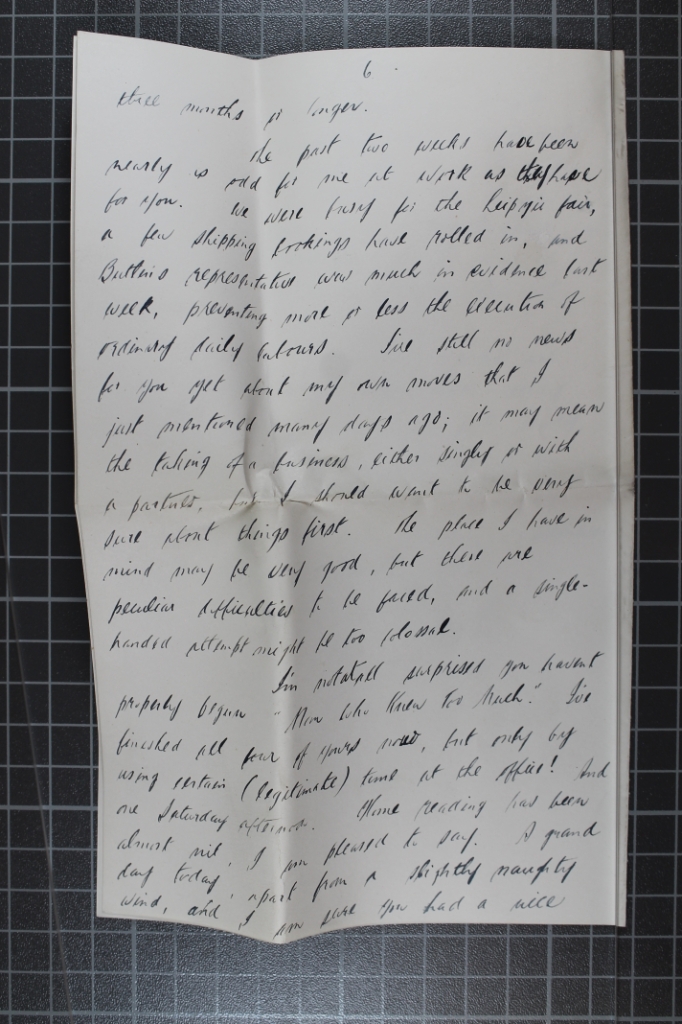 6.
three months or longer.
The past two weeks have been
nearly as odd for me at work as they have
for you. We were busy for the Leipzig fair,
a few shipping bookings have rolled in, and
Butlins representatives was much in evidence last
week, preventing more or less the execution of
ordinary daily labours. I've still no news
for you yet about my own moves that I
just mentioned many days ago; it may mean
the taking of a business, either singly or with
a partner, but I should want to be very
sure about things first. The place I have in
mind may be very good, but there are
peculiar difficulties to be faced, and a single-
handed attempt might be too colossal.
I'm not at all surprised you havent
properly begun "Man who Knew too Much". I've
finished all four of yours now, but only by
using certain (legitimate) time at the office! And
one Saturday afternoon. Home reading has been
almost nil, I am pleased to say. A grand
day today, apart from a slightly naughty
wind, and I am sure you had a nice